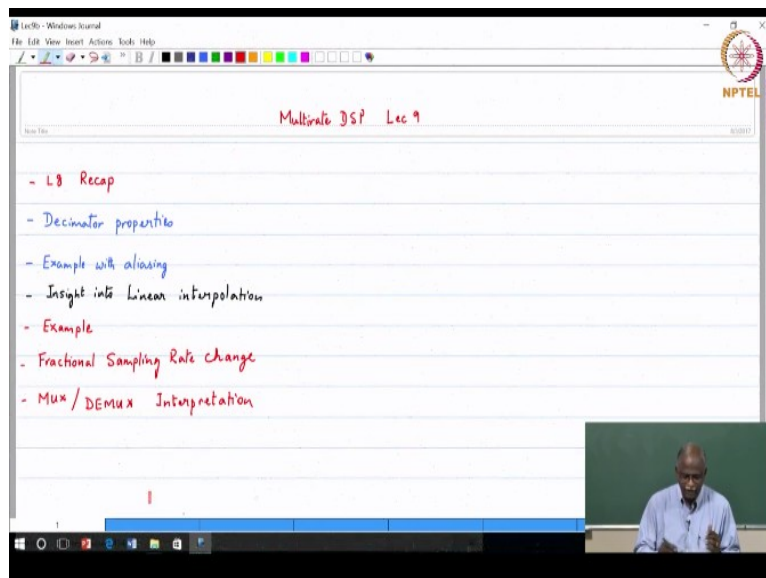 Lec9b - Windows Journal
File Edit View Insert Actions Tools Help
B I
NPTEL
Multirate DSP Lec 9
Note Title
- L8 Recap
- Decimator properties
- Example with aliasing
- Insight into Linear interpolation
- Example
- Fractional Sampling Rate change
- Mux / DEMUX Interpretation
1